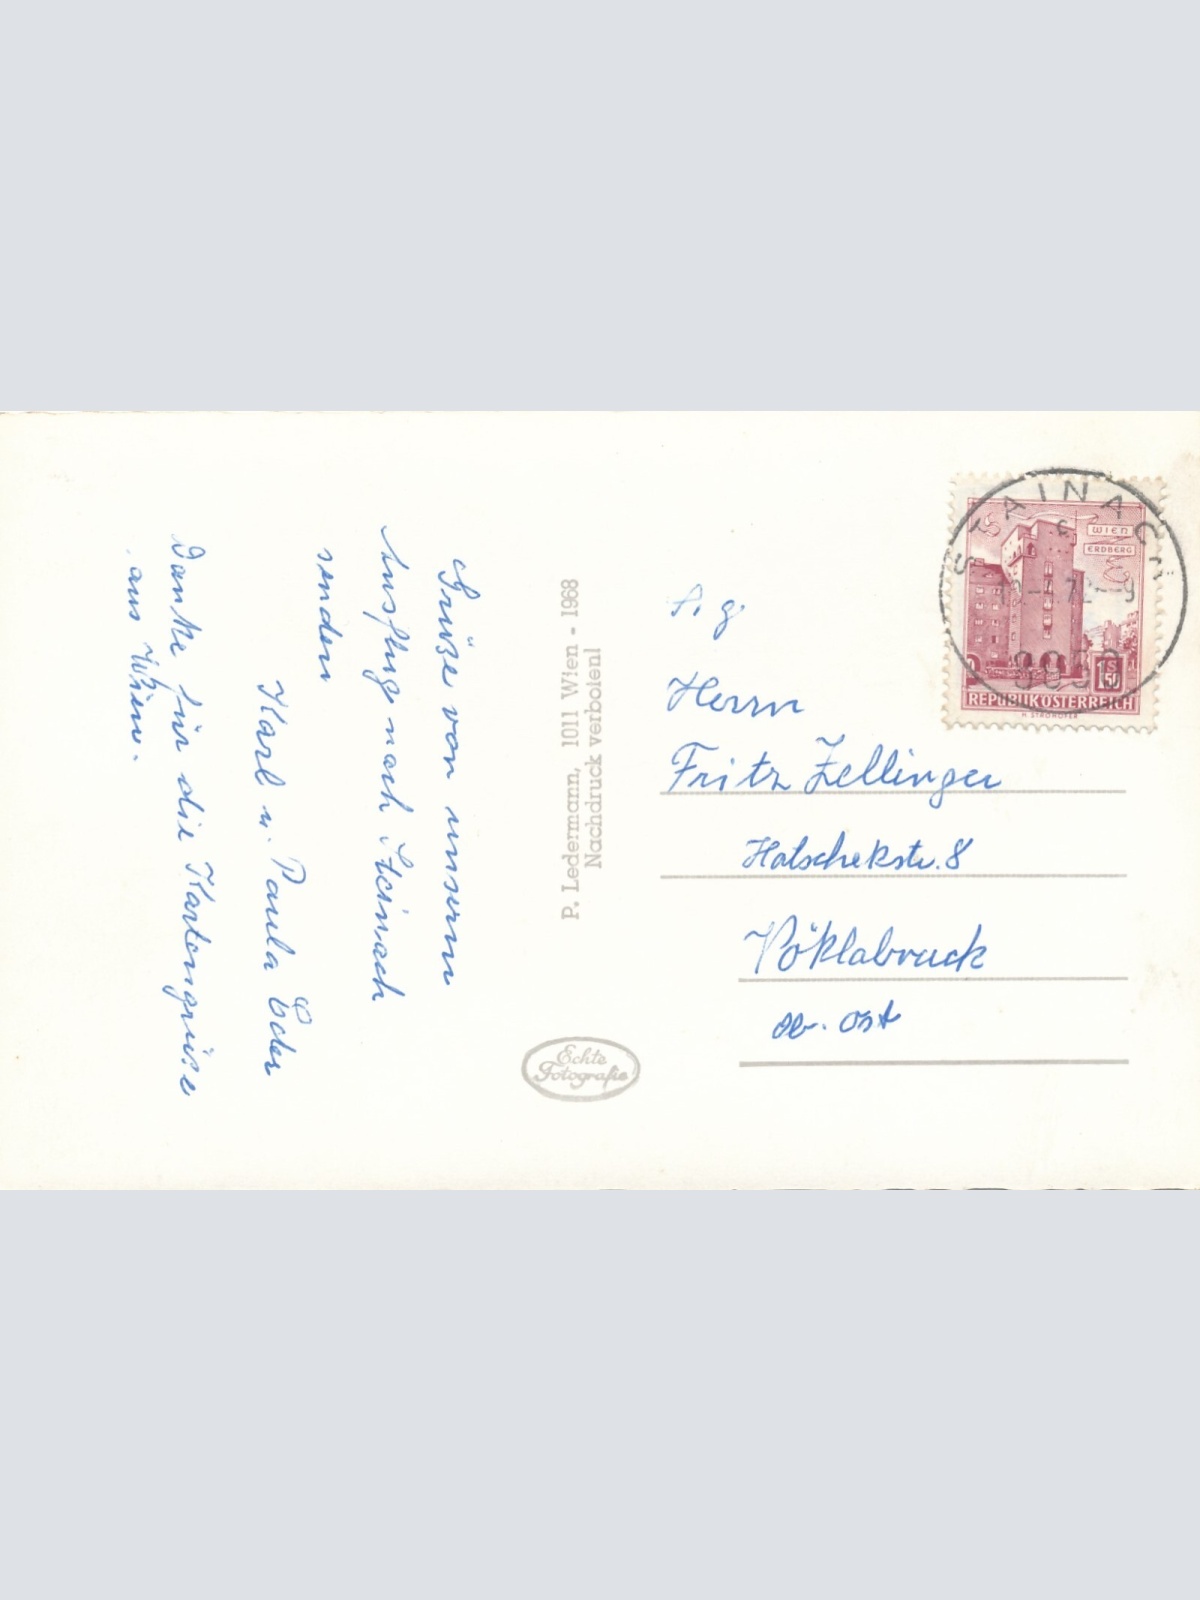 Grüße von unserm
Ausflug nach Steinach
senden
Karl u. Paula Eder
Danke für die Kartengrüße
aus Wien.
P. Ledermann, 1011 Wien - 1968
Nachdruck verboten!
Echte
Fotografie
Herrn
Fritz Zellinger
Hatschekstr. 8
Vöklabruck
ob. Öst
STAINACH
WIEN
ERDBERG
S 1.50
REPUBLIK ÖSTERREICH